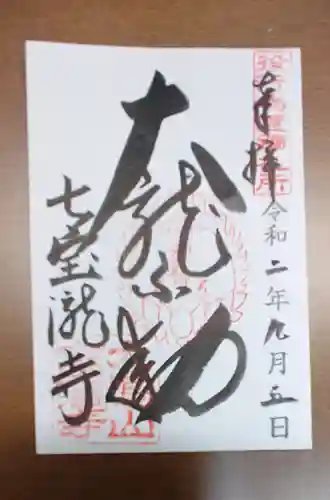 奉拝
令和二年九月五日
大龍不動
七宝瀧寺